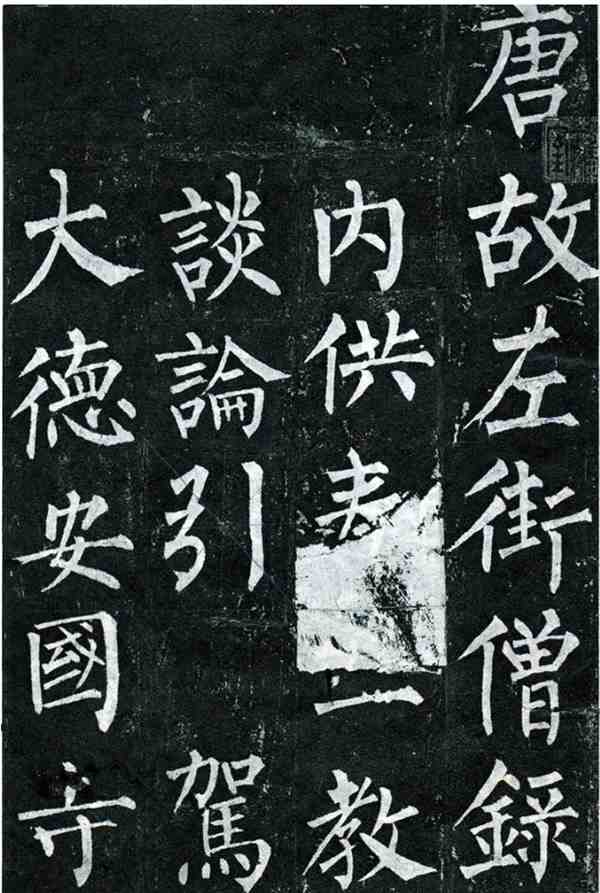 唐故左街僧錄
内供奉教
談論引駕
大德安國寺